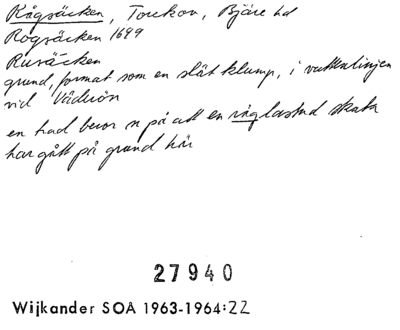 Rågsäcken, Torekov, Bjäre hd
Rogsäcken 1699
Rusäcken
grund, format som en slät klump, i vattenlinjen
vid Väderön
en had beror n på att en råglastad skuta
har gått på grund här
27940
Wijkander SOÄ 1963-1964:22